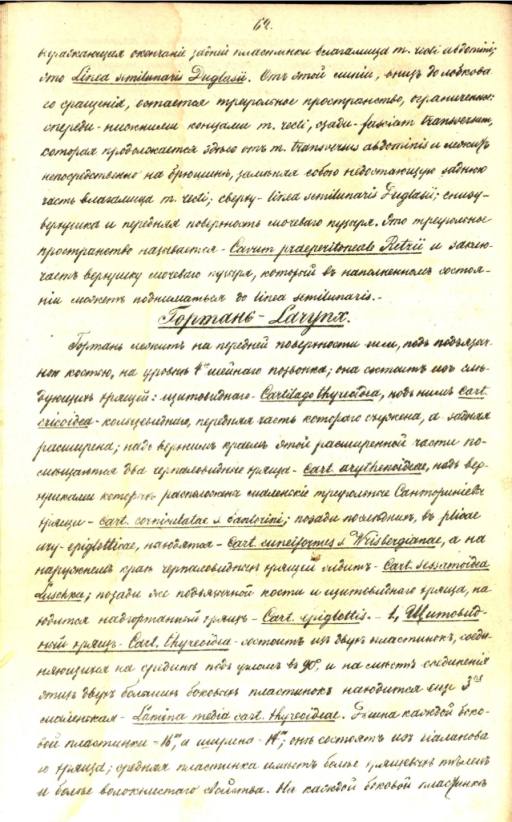 64.
выражающая окончаніе задней пластинки влагалища m. recti abdomini;
это Linea semilunaris Duglasii. Отъ этой линіи, внизъ до лобкова-
го сращенія, остается треугольное пространство, ограниченное:
спереди - нижними концами m. recti, сзади - fasciam transversam,
которая продолжается здѣсь отъ m. transversus abdominis и лежитъ
непосредственно на брюшинѣ, замѣняя собою недостающую заднюю
часть влагалища m. recti; сверху - linea semilunaris Duglasii; снизу -
верхушка и передняя поверхность мочеваго пузыря. Это треугольное
пространство называется - Cavum praeperitoneale Retzii и заклю-
чаетъ верхушку мочеваго пузыря, который въ наполненномъ состоя-
ніи можетъ подниматься до linea semilunaris. -
Гортань - Larynx.
Гортань лежитъ на передней поверхности шеи, подъ подъязыч-
ной костью, на уровнѣ 4го шейнаго позвонка; она состоитъ изъ слѣ-
дующихъ хрящей: щитовиднаго - Cartilago thyreoidea, подъ нимъ cart.
cricoidea - кольцевидный, передняя часть котораго съужена, а задняя
расширена; надъ верхнимъ краемъ этой расширенной части по-
мѣщаются два черпаловидные хряща - cart. arythenoideae, надъ вер-
хушками которыхъ расположены маленькіе треугольные Санториніевы
хрящи - cart. corniculatae s. Santorini; позади послѣднихъ, въ plicae
ary-epiglotticae, находятся - Cart. cuneiformes s. Wrisbergianae, а на
наружномъ краѣ черпаловидныхъ хрящей сидитъ - Cart. sessamoidea
Luschka; позади же подъязычной кости и щитовиднаго хряща, на-
ходится надгортанный хрящъ - Cart. epiglottis. - 1, Щитовид-
ный хрящъ - Cart. thyreoidea - состоитъ изъ двухъ пластинокъ, соеди-
няющихся на срединѣ подъ угломъ въ 90°, и на мѣстѣ соединенія
этихъ двухъ большихъ боковыхъ пластинокъ находится еще 3ья
маленькая - Lamina media cart. thyreoideae. Длина каждой боко-
вой пластинки - 16''', а ширина - 14'''; онѣ состоятъ изъ гіалинова-
го хряща; средняя пластинка имѣетъ болѣе хрящевыхъ тѣлецъ
и болѣе волокнистаго свойства. На каждой боковой пластинкѣ